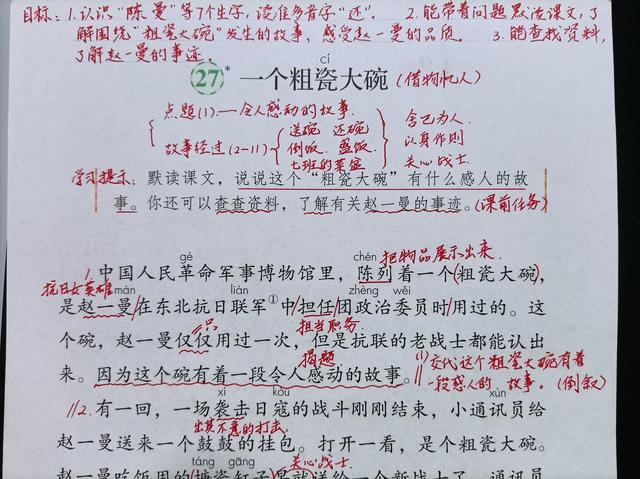 目标：1.认识“陈、曼”等7个生字，读准多音字“还”。 2.能带着问题默读课文，了
解围绕“粗瓷大碗”发生的故事，感受赵一曼的品质。 3.能查找资料，
了解赵一曼的事迹
cí
27* 一个粗瓷大碗(借物忆人)
点题(1).一令人感动的故事.
故事经过(2-11)
送碗 还碗
倒饭 盛饭
七班的菜盆
舍己为人
以身作则
关心战士.
学习提示：默读课文，说说这个“粗瓷大碗”有什么感人的故
事。你还可以查查资料，了解有关赵一曼的事迹。(课前任务)
把物品展示出来.
gé chén
1.中国人民革命军事博物馆里，陈列着一个(粗瓷大碗)，
抗日女英雄
màn lián zhèng wěi
是赵一曼在东北抗日联军①中担任团政治委员时用过的。这
只 担当职务.
个碗，赵一曼仅仅用过一次，但是抗联的老战士都能认出
揭题
来。因为这个碗有着一段令人感动的故事。
(1)交代这个粗瓷大碗有着
一段感人的故事。(倒叙)
xí kòu xùn
2.有一回，一场袭击日寇的战斗刚刚结束，小通讯员给
出其不意的打击.
赵一曼送来一个鼓鼓的挂包。打开一看，是个粗瓷大碗。
táng gāng 关心战士
赵一曼吃饭用的搪瓷缸子早就送给一个新战士了，通讯员